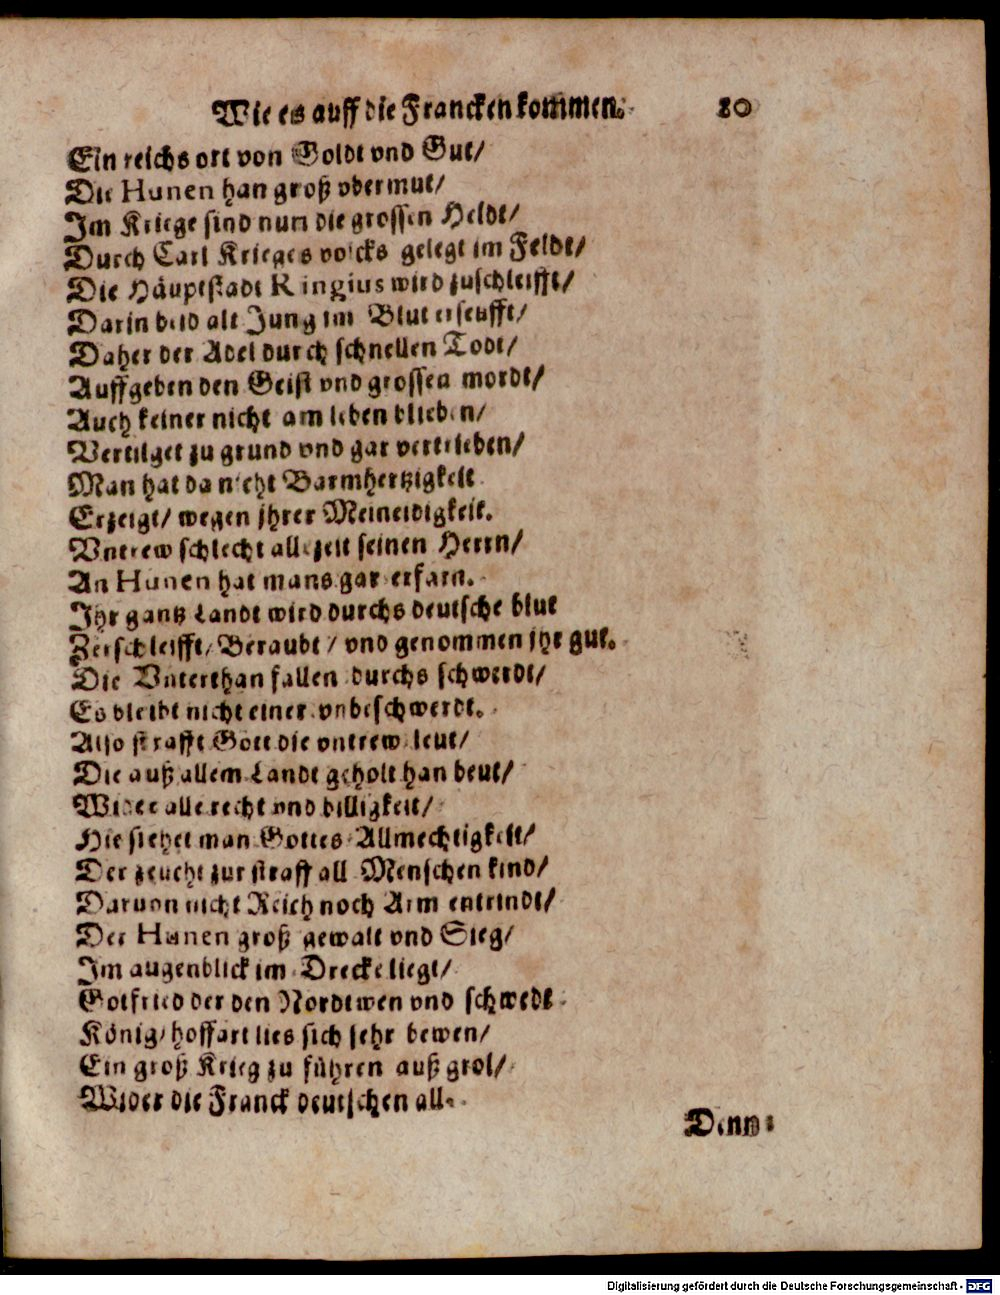 Wie es auff die Francken kommen. 80
Ein reichs ort von Goldt vnd Gut/
Die Hunen han groß vbermut/
Im Kriege sind nun die grossen Heldt/
Durch Carl Krieges volcks gelegt im Feldt/
Die Häuptstadt Ringius wird zuschleifft/
Darin beid alt Jung im Blut erseufft/
Daher der Adel durch schnellen Todt/
Auffgeben den Geist vnd grossen mordt/
Auch keiner nicht am leben blieben/
Vertilget zu grund vnd gar vertrieben/
Man hat da nicht Barmhertzigkeit
Erzeigt/ wegen jhrer Meineidigkeit.
Vntrew schlecht allezeit seinen Herrn/
An Hunen hat mans gar erfarn.
Jhr gantz Landt wird durchs deutsche blut
Zerschleifft/ Beraubt/ vnd genommen jhr gut.
Die Vnterthan fallen durchs schwerdt/
Es bleibt nicht einer vnbeschwerdt.
Also strafft Gott die vntrew leut/
Die auß allem Landt geholt han beut/
Wider alle recht vnd billigkeit/
Hie siehet man Gottes Allmechtigkeit/
Der zeucht zur straff all Menschen kind/
Daruon nicht Reich noch Arm entrindt/
Der Hunen groß gewalt vnd Sieg/
Im augenblick im Drecke liegt/
Gotfried der den Nordtwen vnd schwedt
König/ hoffart lies sich sehr bewen/
Ein groß Krieg zu führen auß grol/
Wider die Franck deutschen all.
Denn
Digitalisierung gefördert durch die Deutsche Forschungsgemeinschaft - DFG